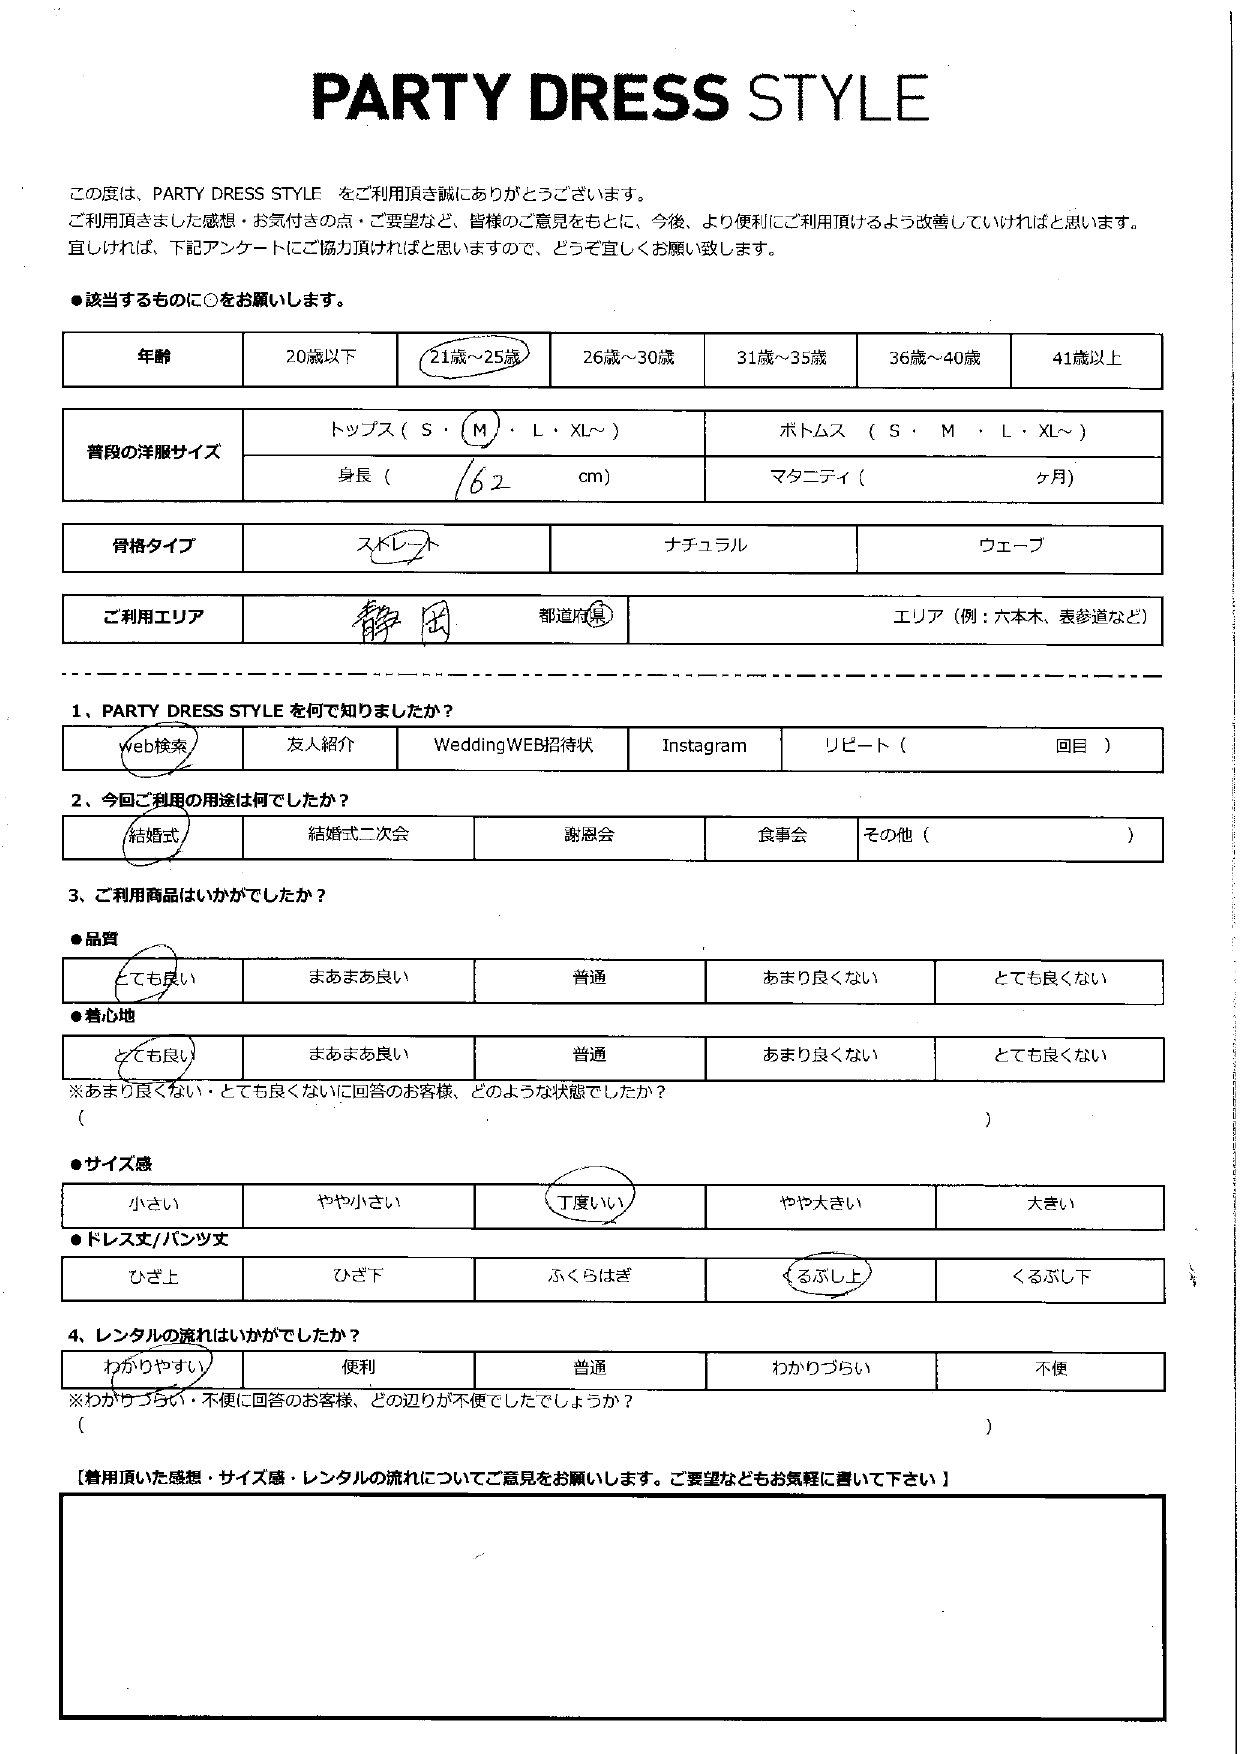 PARTY DRESS STYLE
この度は、PARTY DRESS STYLE をご利用頂き誠にありがとうございます。
ご利用頂きました感想・お気付きの点・ご要望など、皆様のご意見をもとに、今後、より便利にご利用頂けるよう改善していければと思います。
宜しければ、下記アンケートにご協力頂ければと思いますので、どうぞ宜しくお願い致します。
●該当するものに○をお願いします。
年齢 20歳以下 21歳～25歳 26歳～30歳 31歳～35歳 36歳～40歳 41歳以上
普段の洋服サイズ トップス ( S ・ M ・ L ・ XL～ ) ボトムス ( S ・ M ・ L ・ XL～ )
身長 ( 162 cm) マタニティ ( ヶ月)
骨格タイプ ストレート ナチュラル ウェーブ
ご利用エリア 静岡 都道府県 エリア（例：六本木、表参道など）
1、PARTY DRESS STYLE を何で知りましたか？
Web検索 友人紹介 WeddingWEB招待状 Instagram リピート ( 回目 )
2、今回ご利用の用途は何でしたか？
結婚式 結婚式二次会 謝恩会 食事会 その他 ( )
3、ご利用商品はいかがでしたか？
●品質
とても良い まあまあ良い 普通 あまり良くない とても良くない
●着心地
とても良い まあまあ良い 普通 あまり良くない とても良くない
※あまり良くない・とても良くないに回答のお客様、どのような状態でしたか？
( )
●サイズ感
小さい やや小さい 丁度いい やや大きい 大きい
●ドレス丈/パンツ丈
ひざ上 ひざ下 ふくらはぎ くるぶし上 くるぶし下
4、レンタルの流れはいかがでしたか？
わかりやすい 便利 普通 わかりづらい 不便
※わかりづらい・不便に回答のお客様、どの辺りが不便でしたでしょうか？
( )
【着用頂いた感想・サイズ感・レンタルの流れについてご意見をお願いします。ご要望などもお気軽に書いて下さい 】